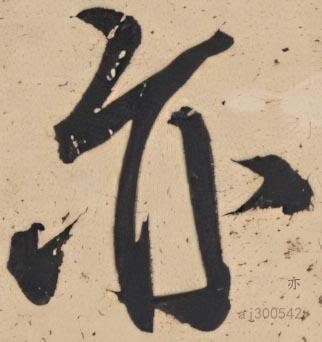 亦
亦
aj300542